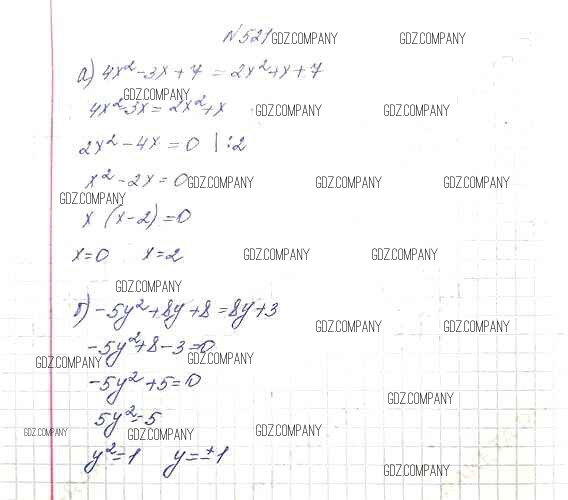 №521 GDZ.COMPANY GDZ.COMPANY
а) 4x²-3x+7=2x²+x+7
GDZ.COMPANY
4x²-3x=2x²+x GDZ.COMPANY GDZ.COMPANY
2x²-4x=0 |:2
x²-2x=0 GDZ.COMPANY GDZ.COMPANY GDZ.COMPANY
GDZ.COMPANY
x(x-2)=0
x=0 x=2 GDZ.COMPANY GDZ.COMPANY
GDZ.COMPANY
б) -5y²+8y+8=8y+3
GDZ.COMPANY GDZ.COMPANY
-5y²+8-3=0
GDZ.COMPANY GDZ.COMPANY
-5y²+5=0
GDZ.COMPANY
5y²=5
GDZ.COMPANY GDZ.COMPANY GDZ.COMPANY
y²=1 y=±1
GDZ.COMPANY